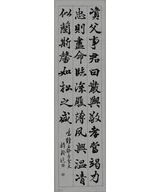 資父事君曰嚴與敬孝當竭力
忠則盡命臨深履薄夙興溫凊
似蘭斯馨如松之盛